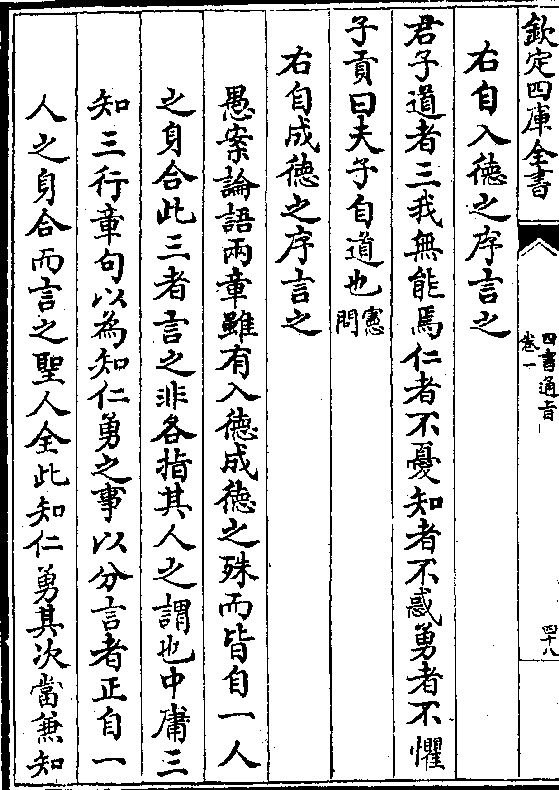 欽定四庫全書
四書通旨
卷一
四十八
右自入徳之序言之
君子道者三我無能焉仁者不憂知者不惑勇者不懼
子貢曰夫子自道也憲問
右自成徳之序言之
愚案論語兩章雖有入徳成徳之殊而皆自一人
之身合此三者言之非各指其人之謂也中庸三
知三行章句以為知仁勇之事以分言者正自一
人之身合而言之聖人全此知仁勇其次當兼知